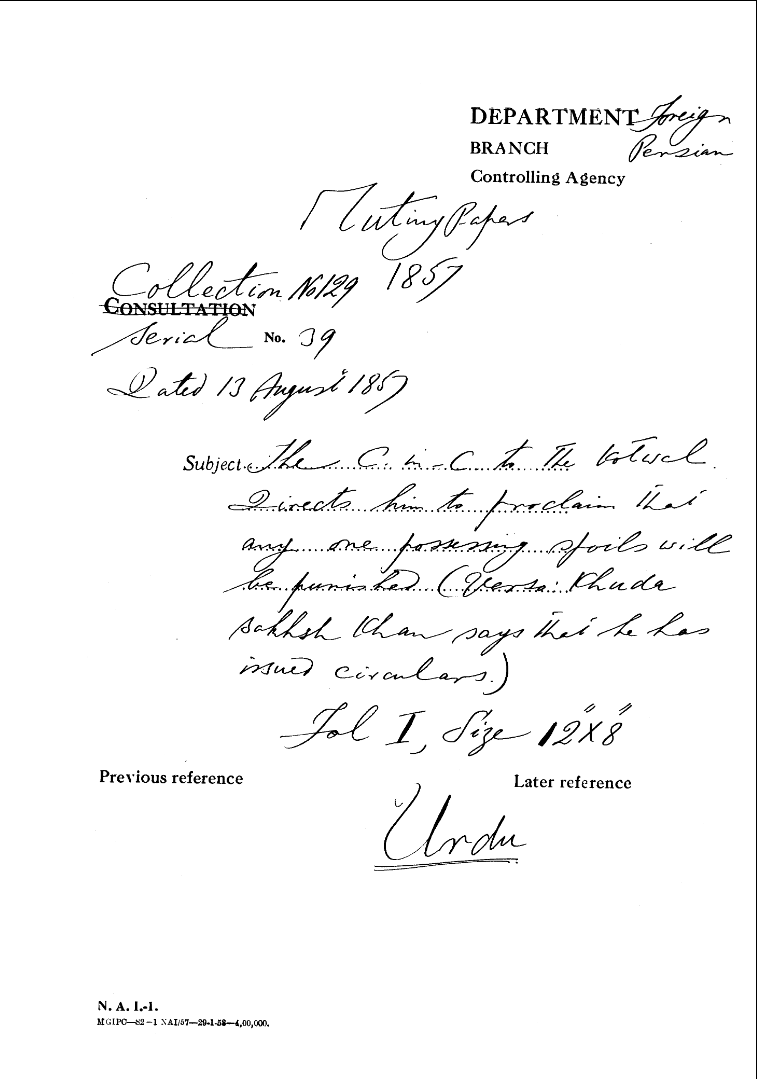 DEPARTMENT Foreign
BRANCH Persian
Controlling Agency
Mutiny Papers
Collection No 129 1857
CONSULTATION
Serial No. 39
Dated 13 August 1857
Subject. The C. in-C to the Kotwal.
Directs him to proclaim that
any one possessing spoils will
be punished (Versa: Khuda
bakhsh Khan says that he has
issued circulars.)
Fol I, Size 12"X8"
Previous reference
Later reference
Urdu
N. A. I.-1.
MGIPC—S2—1 NAI/57—29-1-58—4,00,000.